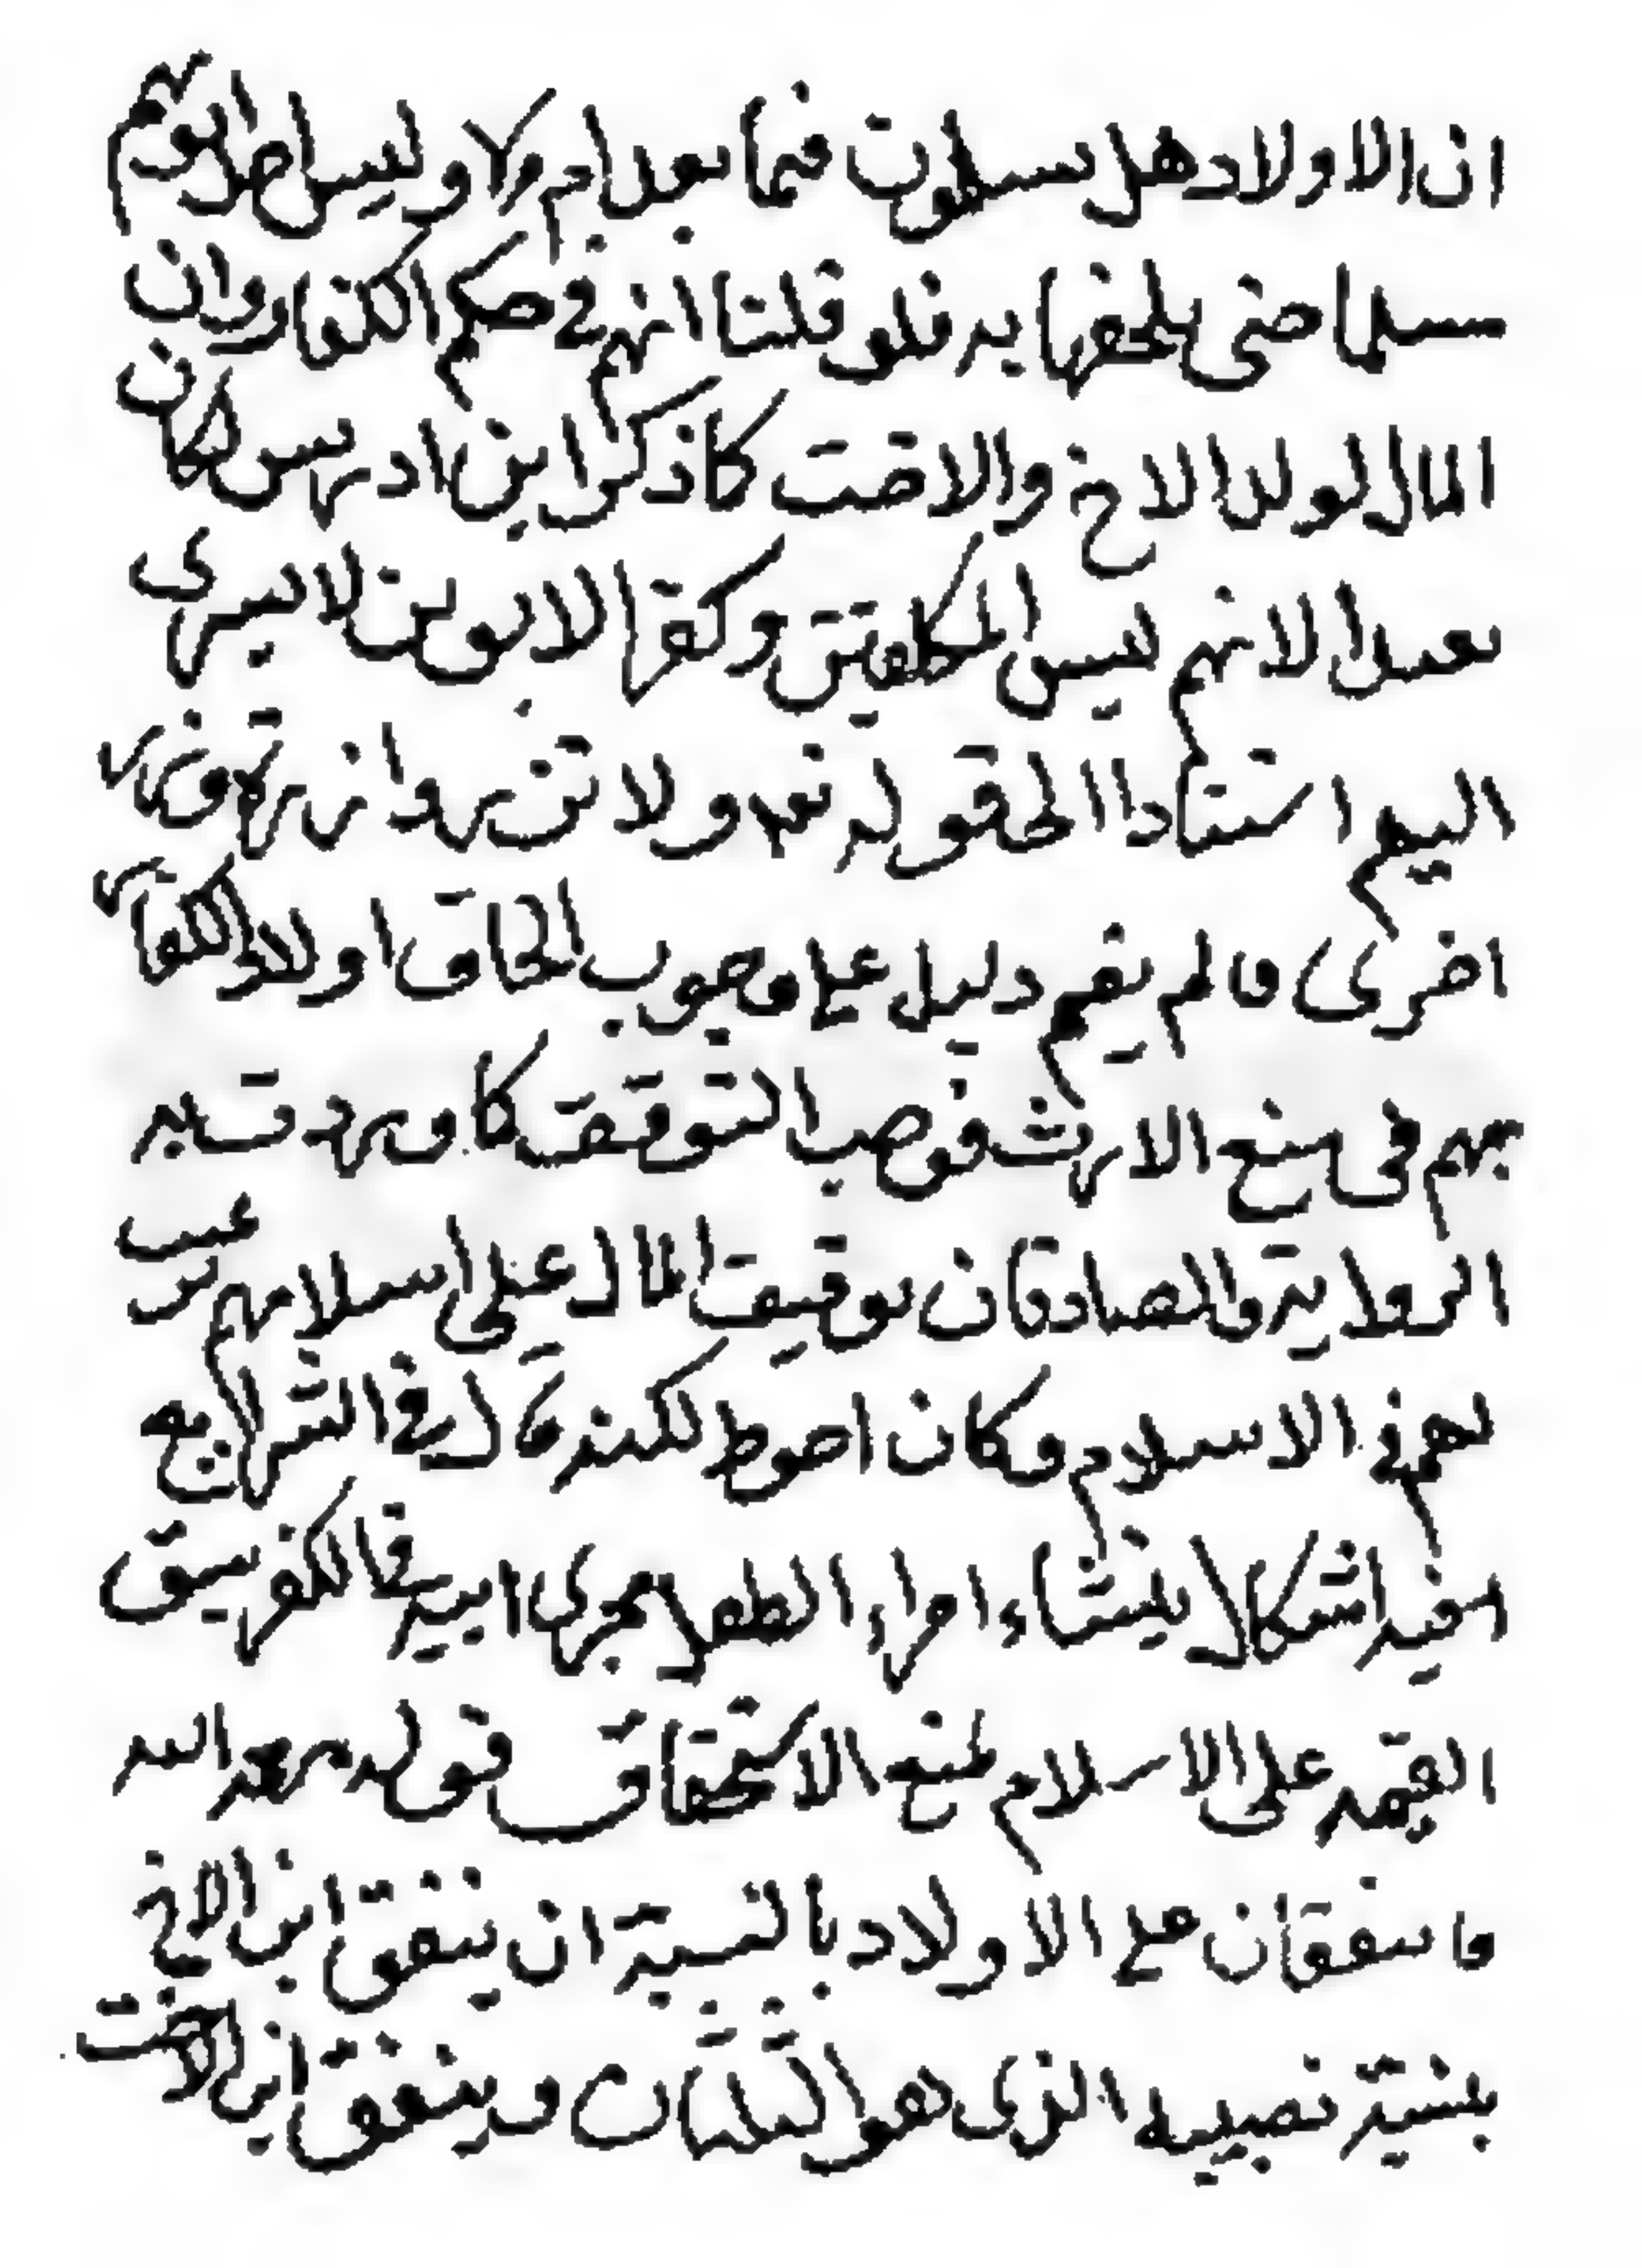 ان الاولاد هل يسلمون فيما بعد ام لا وليس احد ابويهم
مسلما حتى يلحقها به فلو قلنا انهم في حكم الكفار وان
المال لولد الاخ والاخت كما ذكر ابن ادريس لكان
بعيدا لانهم ليس المكلفين وكفر الابوين لا يسرى
اليهم استنادا الى قوله تعه ولا تزر وازرة وزر
اخرى ولم يقم دليل على وجوب الحاق اولاد الكفار
بهم في منع الارث فوجب التوقف كما وردت به
الرواية والصادقان توقيف المال على اسلامهم ترغيب
لهم في الاسلام وكان احوط لكنه قال في الشرايع
وفيه اشكال ينشاء اجراء الطفل مجرى ابيه فالكفر سبق
القيمه على الاسلام لمنع الاستحقاق قوله رحمه الله
وينفقان على الاولاد بالنسبة ان ينفق ابن الاخ
بنسبة نصيبه الذى هو الثلثان وينفق ابن الاخت